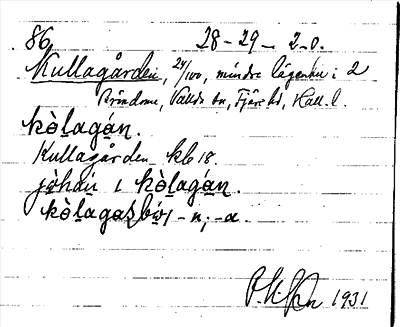 86. 28-29 - 2-0.
Kullagården, 24/100, mindre lägenhet i 2
Brändome, Vallda sn, Fjäre hd, Hall. l.
kòlagán.
Kullagården kb 18.
jòhan i kòlagán.
kòlagas - n; -a.
1931